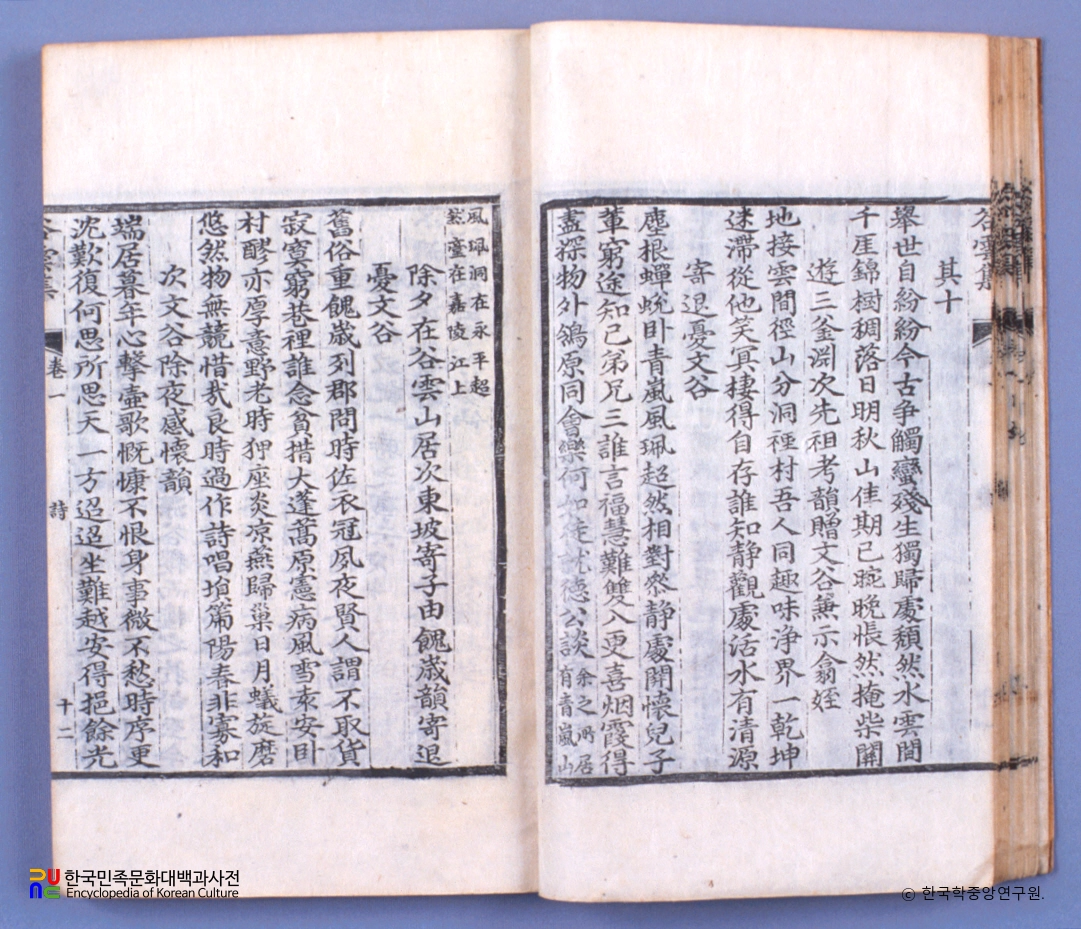 谷雲集
其十
舉世自紛紛今古爭觸蠻殘生獨歸處頹然水雲間
千厓錦樹稠落日明秋山佳期已晼晩悵然掩柴關
遊三釜淵次先祖考韻贈文谷兼示翕姪
地接雲間徑山分洞裡村吾人同趣味淨界一乾坤
逑滯從他笑冥棲得自存誰知靜觀處活水有清源
寄退憂文谷
塵根蟬蛻卧青嵐風珮超然相對叅靜處開懷兒子
輩窮途知己弟兄三誰言福慧難雙八更喜烟霞得
盡探物外鴒原同會樂何如徒就德公談 余之所居
有青嵐山
風珮洞在永平超
然臺在嘉陵江上
除夕在谷雲山居次東坡寄子由餽歲韻寄退
憂文谷
舊俗重餽歲列郡問時佐衣冠夙夜賢人謂不取貨
寂寞窮巷裡誰念貧措大蓬蒿原憲病風雪袁安卧
村醪亦厚意野老時狎座炎凉燕歸巢日月蟻旋磨
悠然物無競惜哉良時過作詩唱塤篪陽春非寡和
次文谷除夜感懷韻
端居暮年心擊壺歌慨慷不恨身事微不愁時序更
沈歎復何思所思天一方迢迢坐難越安得挹餘光
谷雲集 卷一 詩 十二
한국민족문화대백과사전
Encyclopedia of Korean Culture
© 한국학중앙연구원.